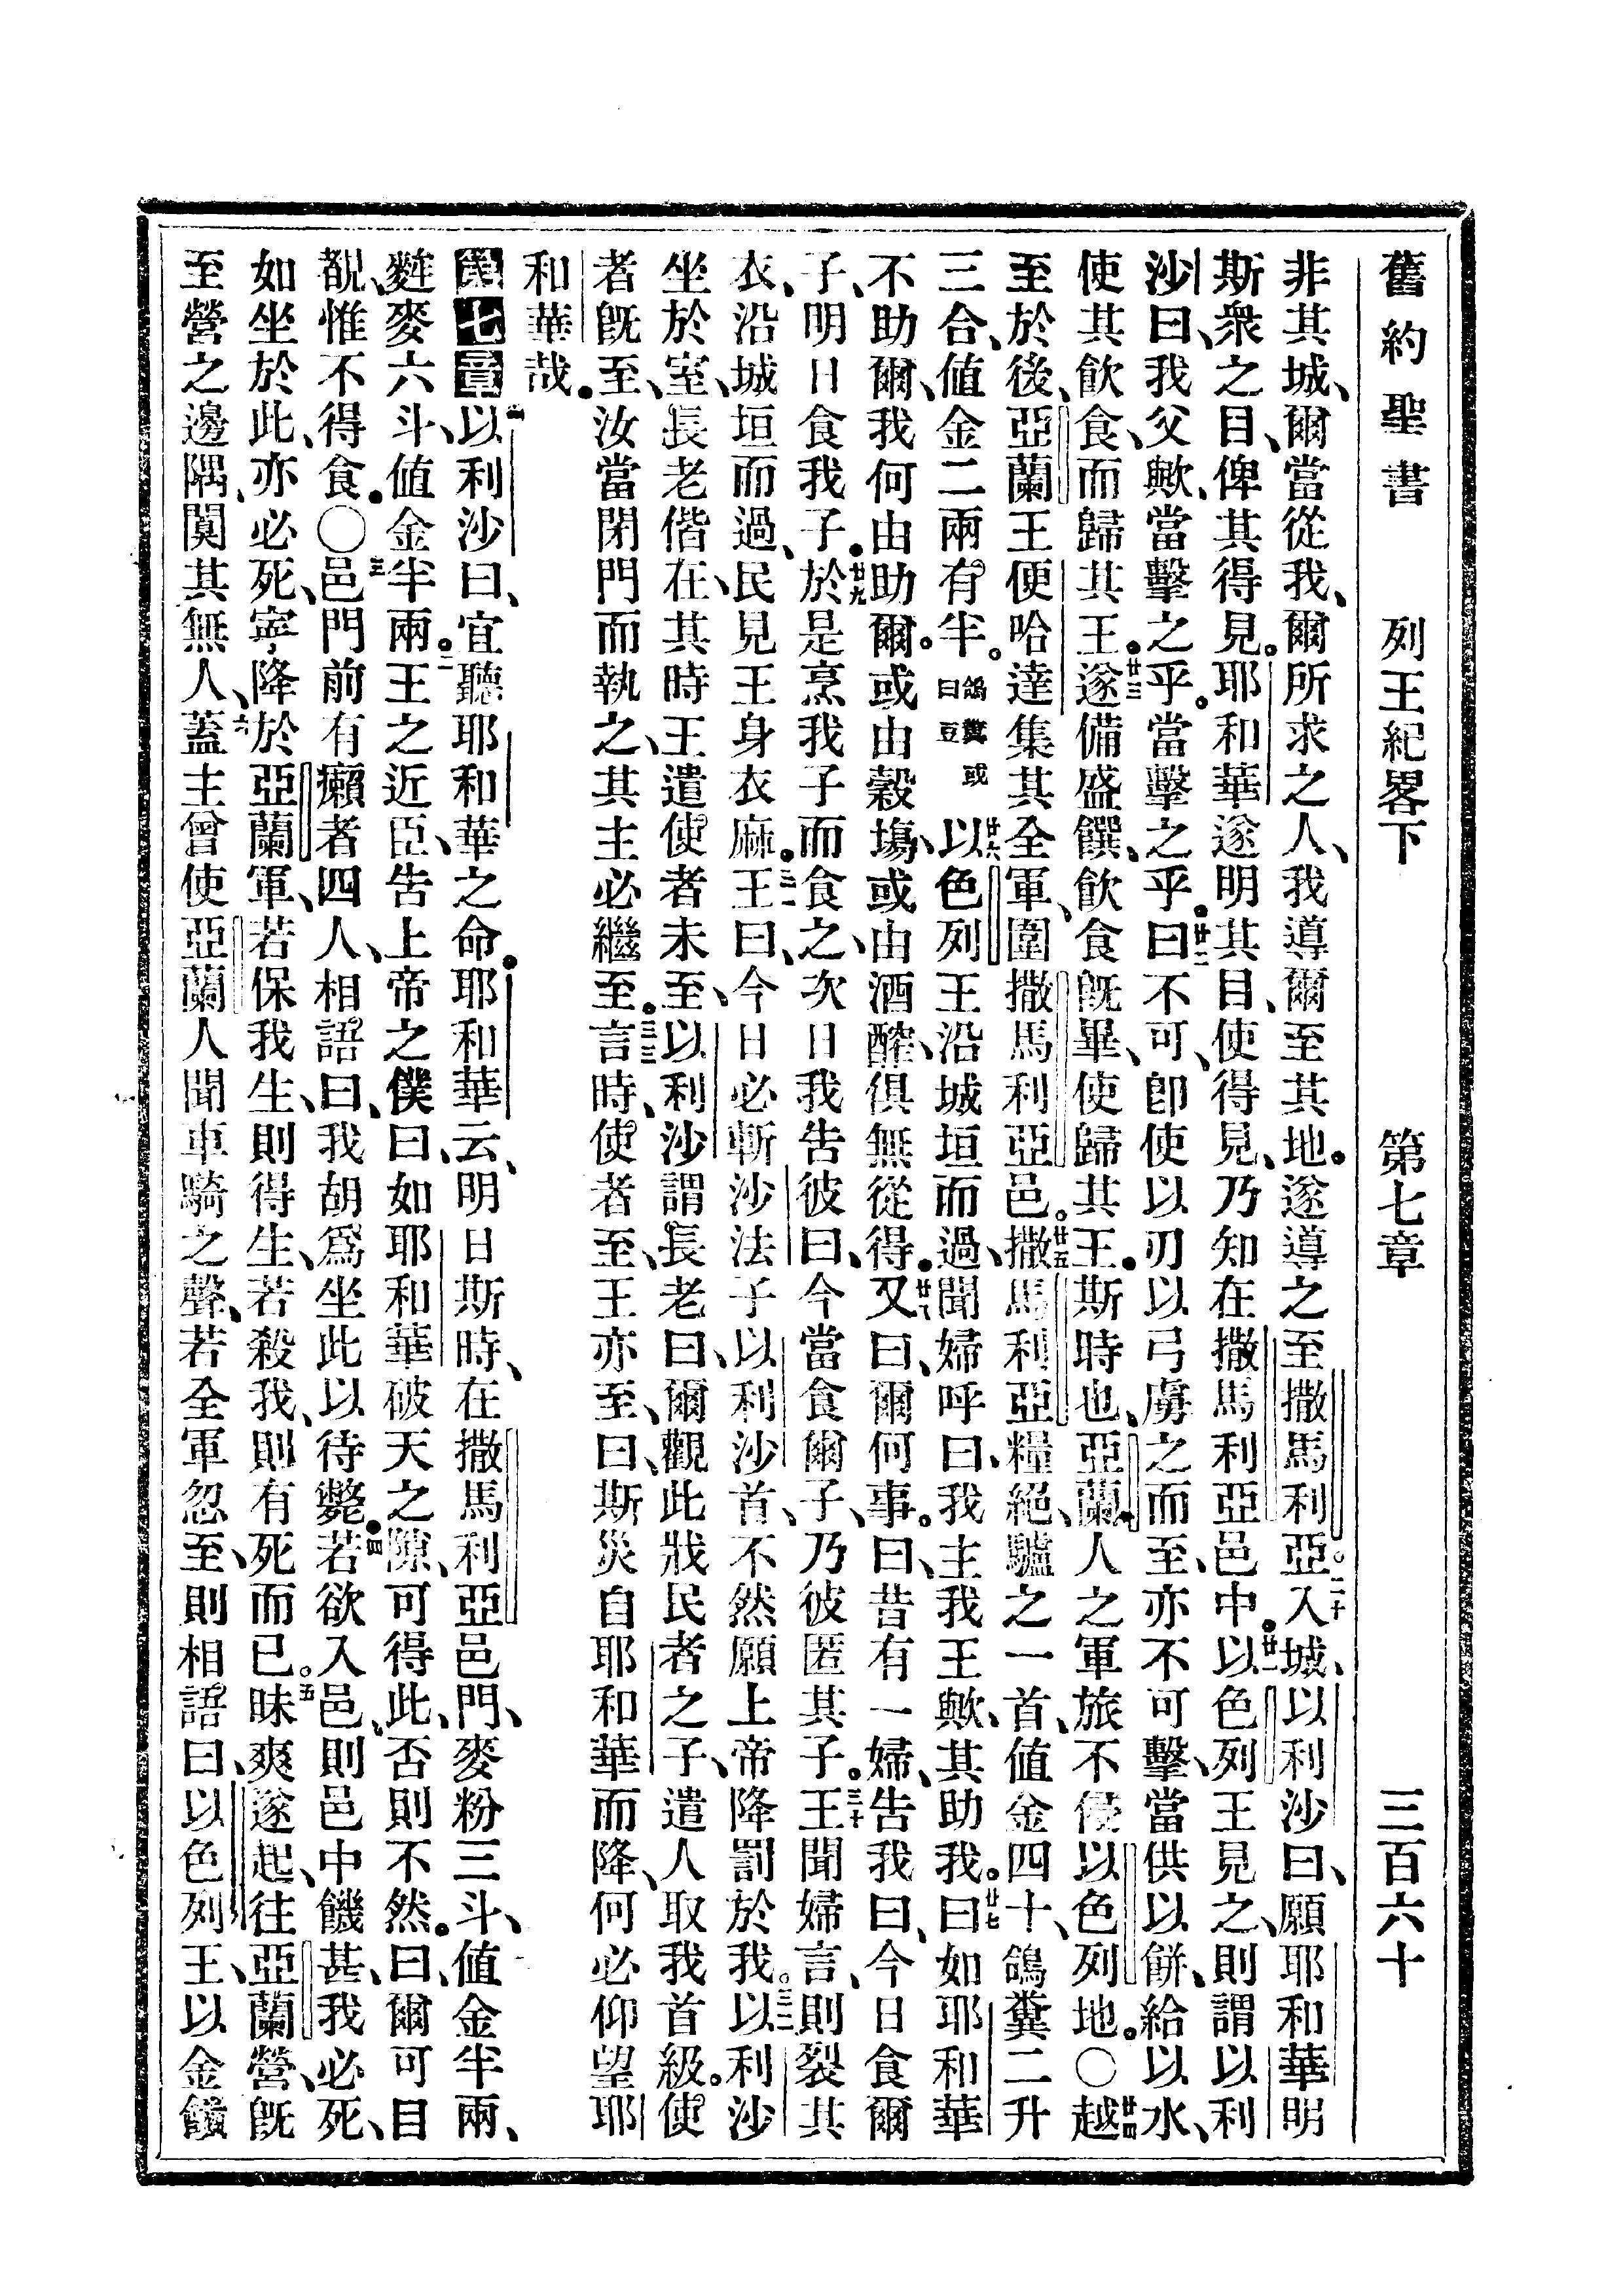 舊約聖書 列王紀畧下 第七章 三百六十
非其城、爾當從我、爾所求之人、我導爾至其地。遂導之至撒馬利亞。二十入城、以利沙曰、願耶和華明
斯衆之目、俾其得見。耶和華遂明其目、使得見、乃知在撒馬利亞邑中。廿一以色列王見之、則謂以利
沙曰、我父歟、當擊之乎。當擊之乎。廿二曰不可、卽使以刃以弓虜之而至、亦不可擊、當供以餅、給以水、
使其飲食、而歸其王。廿三遂備盛饌、飲食旣畢、使歸其王。斯時也、亞蘭人之軍旅不侵以色列地。〇廿四越
至於後、亞蘭王便哈達集其全軍、圍撒馬利亞邑。廿五撒馬利亞糧絕、驢之一首、値金四十、鴿糞二升
三合、値金二兩有半。鴿糞或曰豆廿六以色列王沿城垣而過、聞婦呼曰、我主我王歟、其助我。廿七曰如耶和華
不助爾、我何由助爾。或由穀塲、或由酒醡、俱無從得。廿八又曰、爾何事。曰、昔有一婦、告我曰、今日食爾
子、明日食我子。廿九於是烹我子而食之、次日我告彼曰、今當食爾子、乃彼匿其子。三十王聞婦言、則裂其
衣、沿城垣而過、民見王身衣麻。三一王曰、今日必斬沙法子以利沙首、不然願上帝降罰於我。三二以利沙
坐於室、長老偕在、其時王遣使者未至、以利沙謂長老曰、爾觀此戕民者之子、遣人取我首級。使
者旣至、汝當閉門而執之、其主必繼至。三三言時、使者至、王亦至、曰、斯災自耶和華而降、何必仰望耶
和華哉。
第七章一以利沙曰、宜聽耶和華之命。耶和華云、明日斯時、在撒馬利亞邑門、麥粉三斗、値金半兩、
麰麥六斗、値金半兩。二王之近臣、吿上帝之僕曰、如耶和華破天之隙、可得此、否則不然。曰、爾可目
覩、惟不得食。〇三邑門前有癩者四人、相語曰、我胡爲坐此以待斃。四若欲入邑、則邑中饑甚、我必死、
如坐於此、亦必死、寧降於亞蘭軍、若保我生、則得生、若殺我、則有死而已。五昧爽遂起、往亞蘭營、旣
至營之邊隅、闃其無人、六蓋主曾使亞蘭人聞車騎之聲、若全軍忽至、則相語曰、以色列王、以金餽